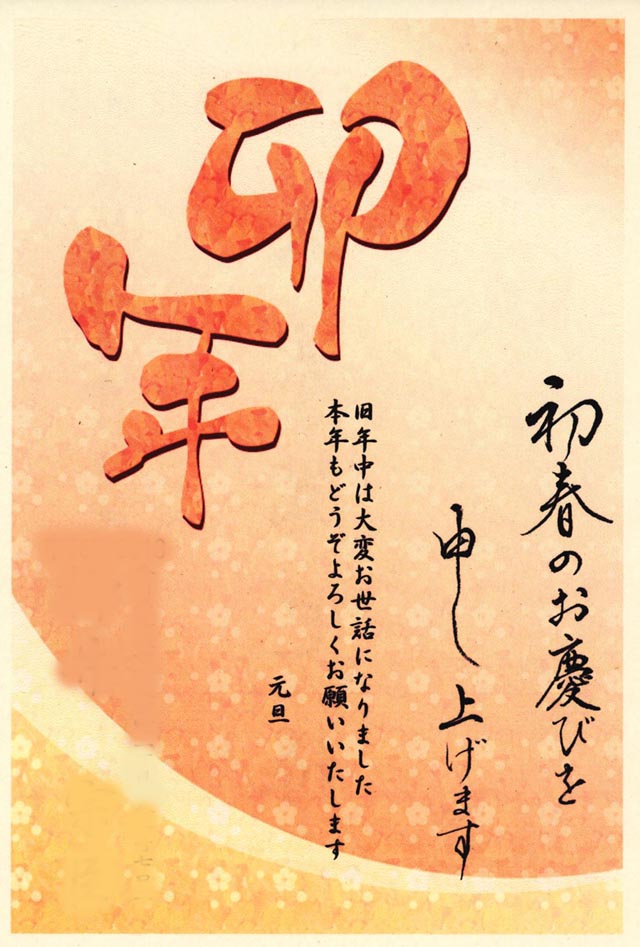 卯年
初春のお慶びを
申し上げます
旧年中は大変お世話になりました
本年もどうぞよろしくお願いいたします
元旦
七〇